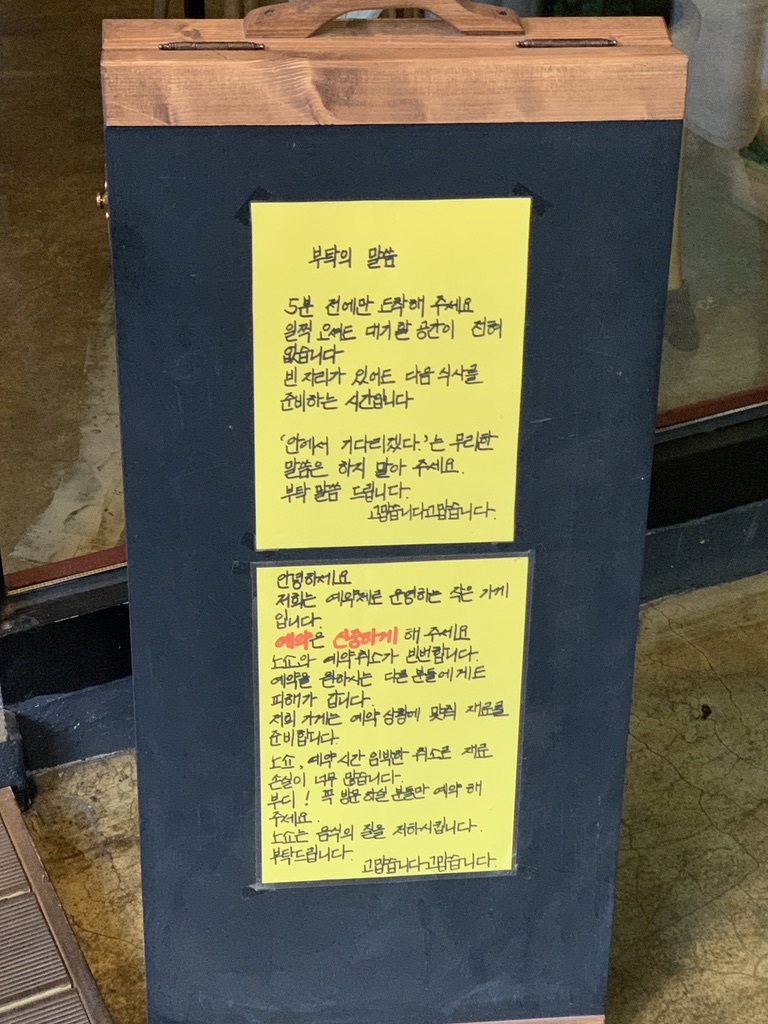 부탁의 말씀
5분 전에만 도착해 주세요
일찍 오셔도 대기할 공간이 전혀
없습니다
빈 자리가 있어도 다음 식사를
준비하는 시간입니다
'안에서 기다리겠다.'는 무리한
말씀은 하지 말아 주세요.
부탁 말씀 드립니다.
고맙습니다고맙습니다.
안녕하세요
저희는 예약제로 운영하는 작은 가게
입니다.
예약은 신중하게 해 주세요
노쇼와 예약취소가 빈번합니다.
예약을 원하시는 다른 분들에게도
피해가 갑니다.
저희 가게는 예약 상황에 맞춰 재료를
준비합니다.
노쇼, 예약시간 임박한 취소로 재료
손실이 너무 많습니다.
부디! 꼭 방문하실 분들만 예약 해
주세요.
노쇼는 음식의 질을 저하시킵니다.
부탁드립니다.
고맙습니다고맙습니다.